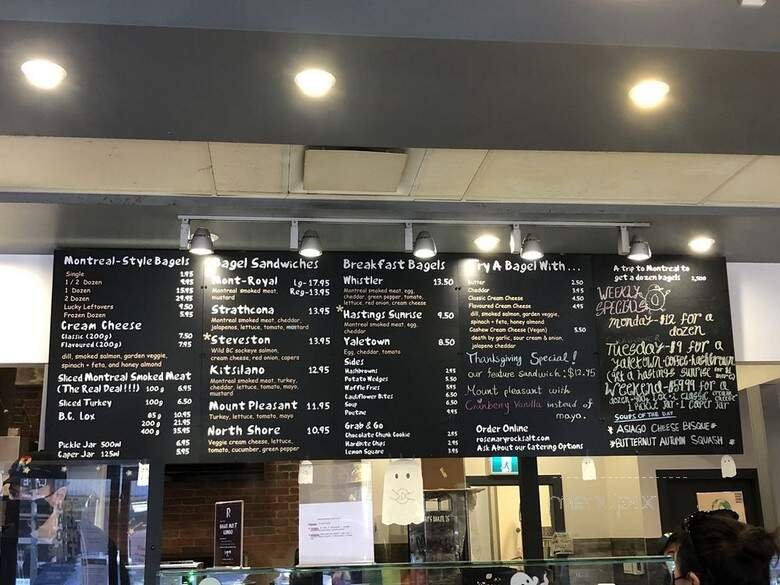 Montreal-Style Bagels
Single 1.95
1/2 Dozen 9.95
1 Dozen 15.95
2 Dozen 29.95
Lucky Leftovers 9.50
Frozen Dozen 5.95
Cream Cheese
Classic (200g) 7.50
Flavoured (200g) 7.95
dill, smoked salmon, garden veggie,
spinach + feta, and honey almond
Sliced Montreal Smoked Meat
(The Real Deal!!!) 100g 6.95
Sliced Turkey 100g 6.50
B.C. Lox 85g 10.95
200g 21.95
400g 35.95
Pickle Jar 500ml 6.95
Caper Jar 125ml 5.95
Bagel Sandwiches
Mont-Royal Lg-17.95
Montreal smoked meat, Reg-13.95
mustard
Strathcona 13.95
Montreal smoked meat, cheddar,
jalapenos, lettuce, tomato, mustard
*Steveston 13.95
Wild BC sockeye salmon,
cream cheese, red onion, capers
Kitsilano 12.95
Montreal smoked meat, turkey,
cheddar, lettuce, tomato, mayo,
mustard
Mount Pleasant 11.95
Turkey, lettuce, tomato, mayo
North Shore 10.95
Veggie cream cheese, lettuce,
tomato, cucumber, green pepper
Breakfast Bagels
Whistler 13.50
Montreal smoked meat, egg,
cheddar, green pepper, tomato,
lettuce, red onion, cream cheese
*Hastings Sunrise 9.50
Montreal smoked meat, egg,
cheddar
Yaletown 8.50
Egg, cheddar, tomato
Sides
Hashbrowns 2.95
Potato Wedges 5.50
Waffle Fries 5.95
Cauliflower Bites 6.50
Soup 6.50
Poutine 9.95
Grab & Go
Chocolate Chunk Cookie 2.95
Hardbite Chips 2.95
Lemon Square 3.95
Try A Bagel With...
Butter 2.50
Cheddar 3.95
Classic Cream Cheese 4.50
Flavoured Cream Cheese 4.95
dill, smoked salmon, garden veggie,
spinach + feta, honey almond
Cashew Cream Cheese (Vegan) 5.50
death by garlic, sour cream & onion,
jalapeno cheddar
Thanksgiving Special!
our feature sandwich: $12.75
Mount pleasant with
Cranberry Vanilla instead of
mayo.
Order Online
rosemaryrocksalt.com
Ask About our Catering Options
A trip to Montreal to
get a dozen bagels
WEEKLY
SPECIALS
Monday-$12 for a
dozen
Tuesday-$9 for a
yaletown+coffee+hashbrown
Weekend-$59.99 for a
SOUPS OF THE DAY
* ASIAGO CHEESE BISQUE *
* BUTTERNUT AUTUMN SQUASH *